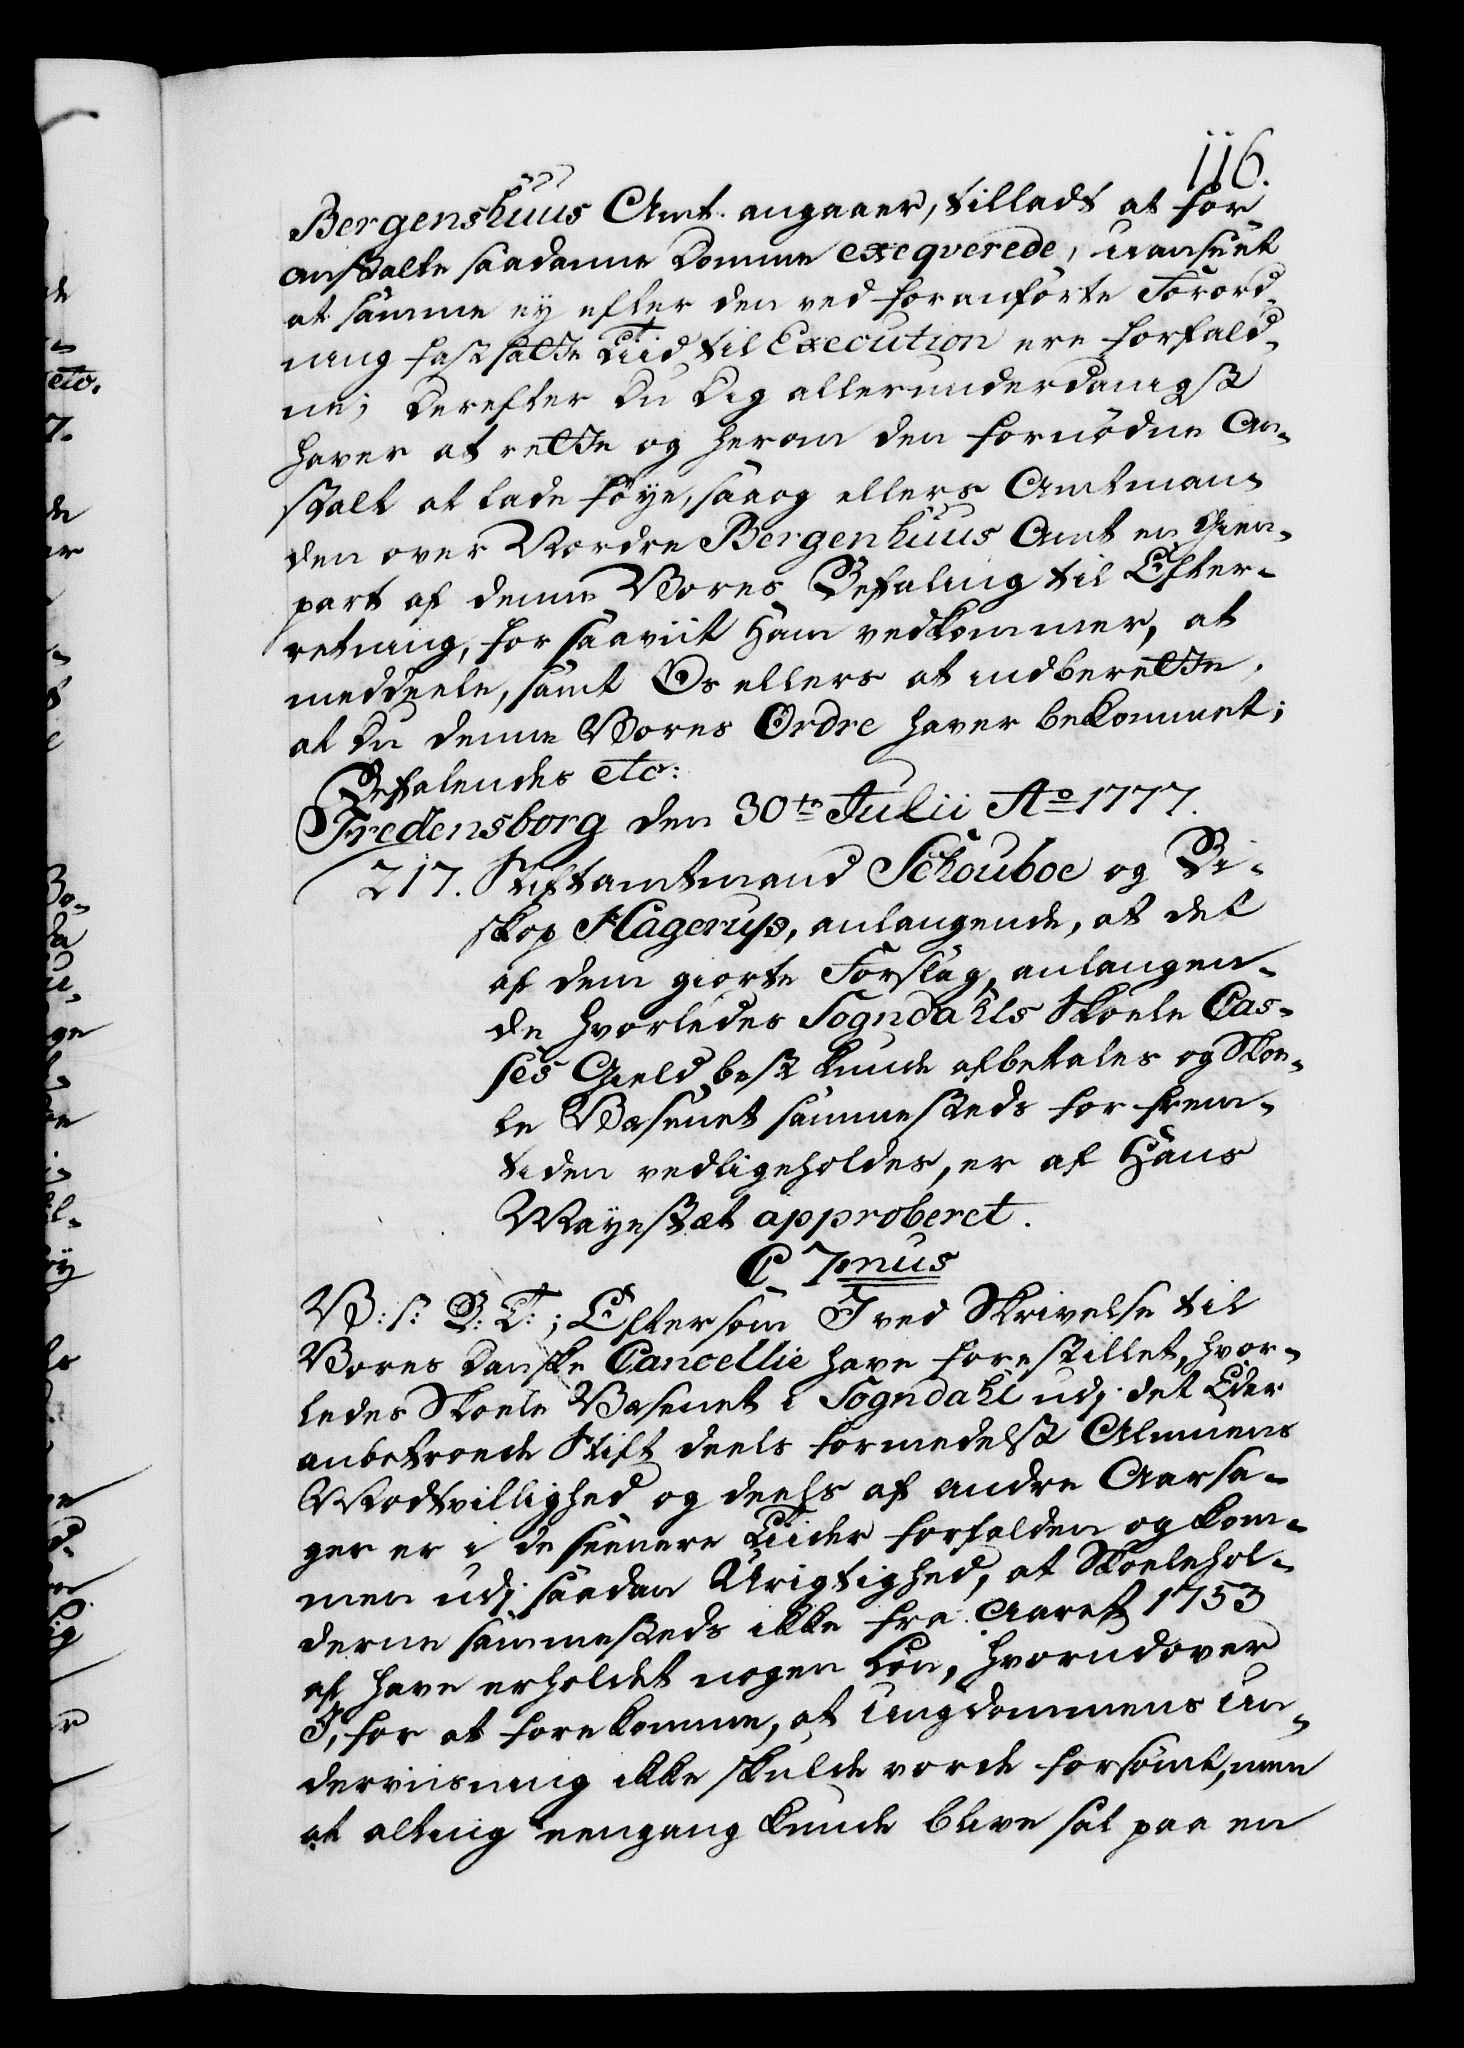 116.
Bergenshuus Amt. angaaer, tilladt at for-
anstalte saadanne Domme exeqverede, uanseet
at samme ey efter den ved foranførte Forord-
ning fastsatte Tiid til Execution ere forfald-
ne; Derefter Du Dig allerunderdanigst
haver at rette og herom den fornødne An-
stalt at lade føye, saa og ellers Amtman-
den over Nordre Bergenhuus Amt en Gien-
part af denne Vores Befaling til Efter-
retning, for saaviit ham vedkommer, at
meddeele, samt Os ellers at indberette,
at Du denne Vores Ordre haver bekommet;
Befalendes etc:
Fredensborg den 30te Julii Ao 1777.
217. Stiftamtmand Schouboe og Bi-
skop Hagerup, anlangende, at det
af dem giorte Forslag, anlangen-
de hvorledes Sogndahls Skoele Cas-
ses Gield best kunde afbetales og Skoe-
le Væsenet sammesteds for frem-
tiden vedligeholdes, er af Hans
Mayestæt approberet.
C 7mus
V: s: G: T:; Eftersom I ved Skrivelse til
Vores Danske Cancellie have forestillet, hvor-
ledes Skoele Væsenet i Sogndahl udj det Eder
anbetroede Stift deels formedelst Almuens
Modtvillighed og deels af andre Aarsa-
ger er i de seenere Tiider forfalden og kom-
men udj saadan Urigtighed, at Skoelehol-
derne sammesteds ikke fra Aaret 1753
af have erholdet nogen Løn, hvorudover
I, for at forekomme, at Ungdommens Un-
derviisning ikke skulde vorde forsømt, men
at alting eengang kunde blive sat paa en